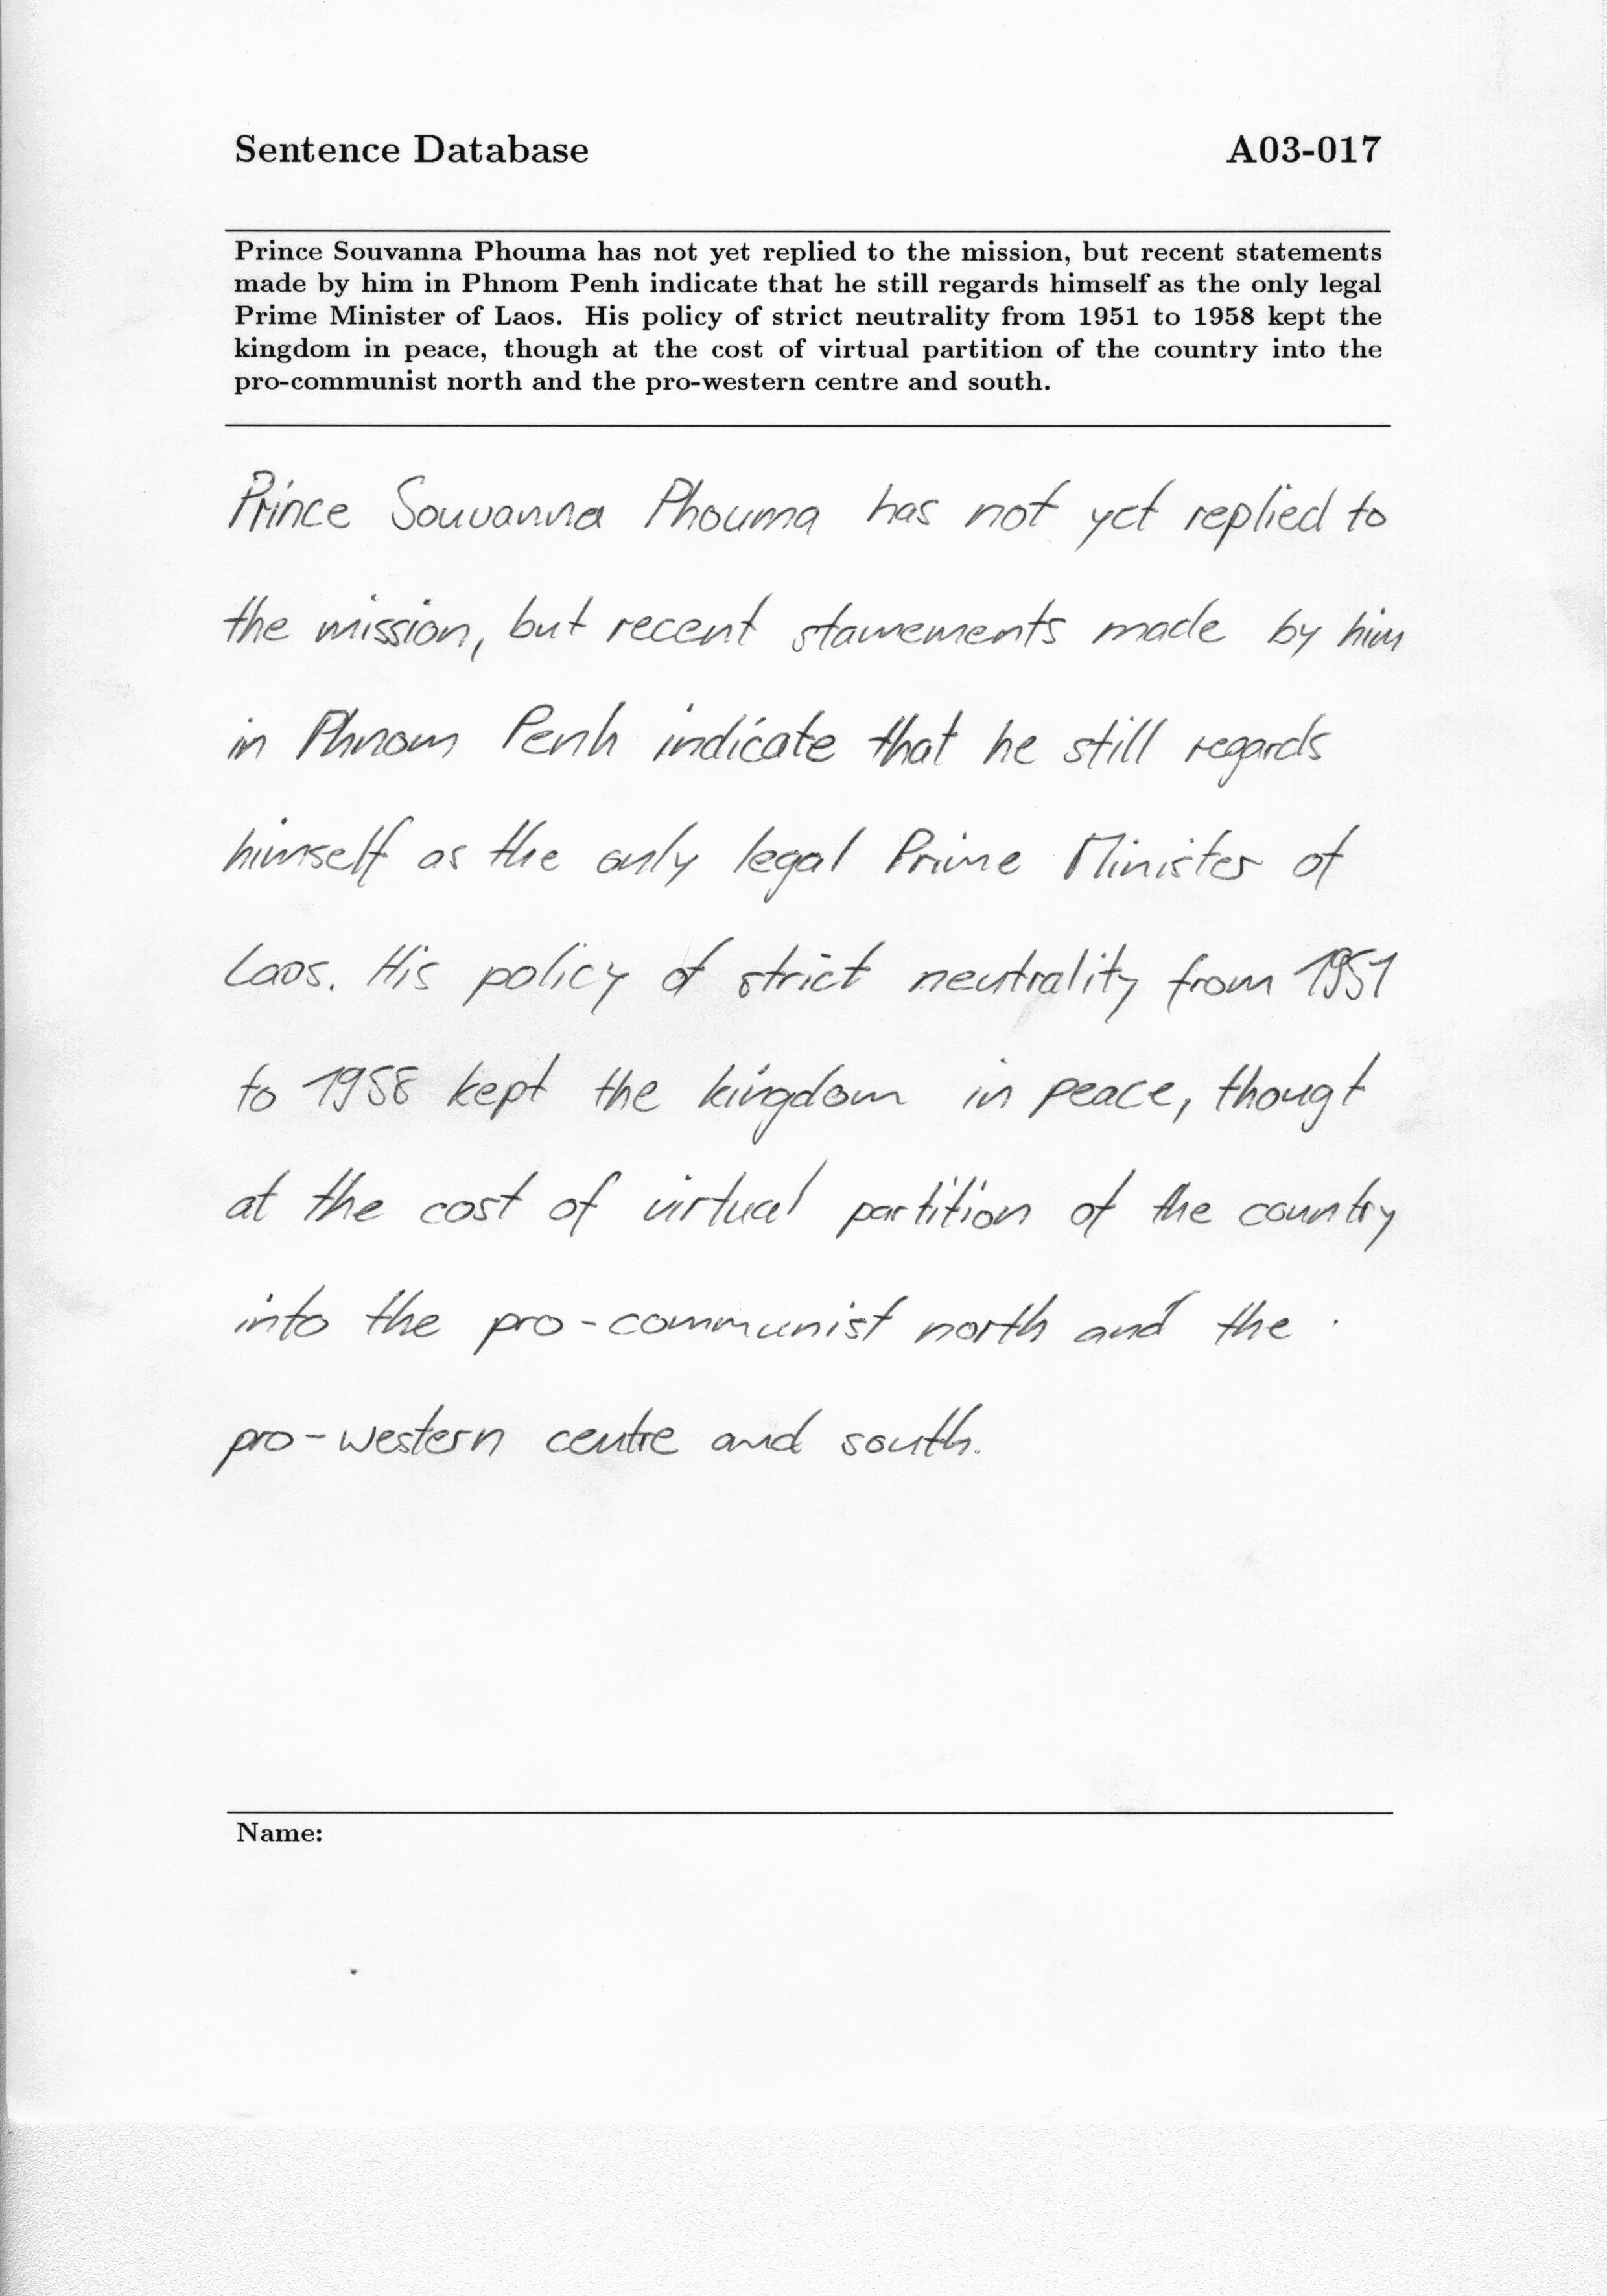 Sentence Database A03-017
Prince Souvanna Phouma has not yet replied to the mission, but recent statements
made by him in Phnom Penh indicate that he still regards himself as the only legal
Prime Minister of Laos. His policy of strict neutrality from 1951 to 1958 kept the
kingdom in peace, though at the cost of virtual partition of the country into the
pro-communist north and the pro-western centre and south.
Prince Souvanna Phouma has not yet replied to
the mission, but recent stawements made by him
in Phnom Penh indicate that he still regards
himself as the only legal Prime Minister of
Laos. His policy of strict neutrality from 1951
to 1958 kept the kingdom in peace, thougt
at the cost of virtual partition of the country
into the pro-communist north and the
pro-western centre and south.
Name: